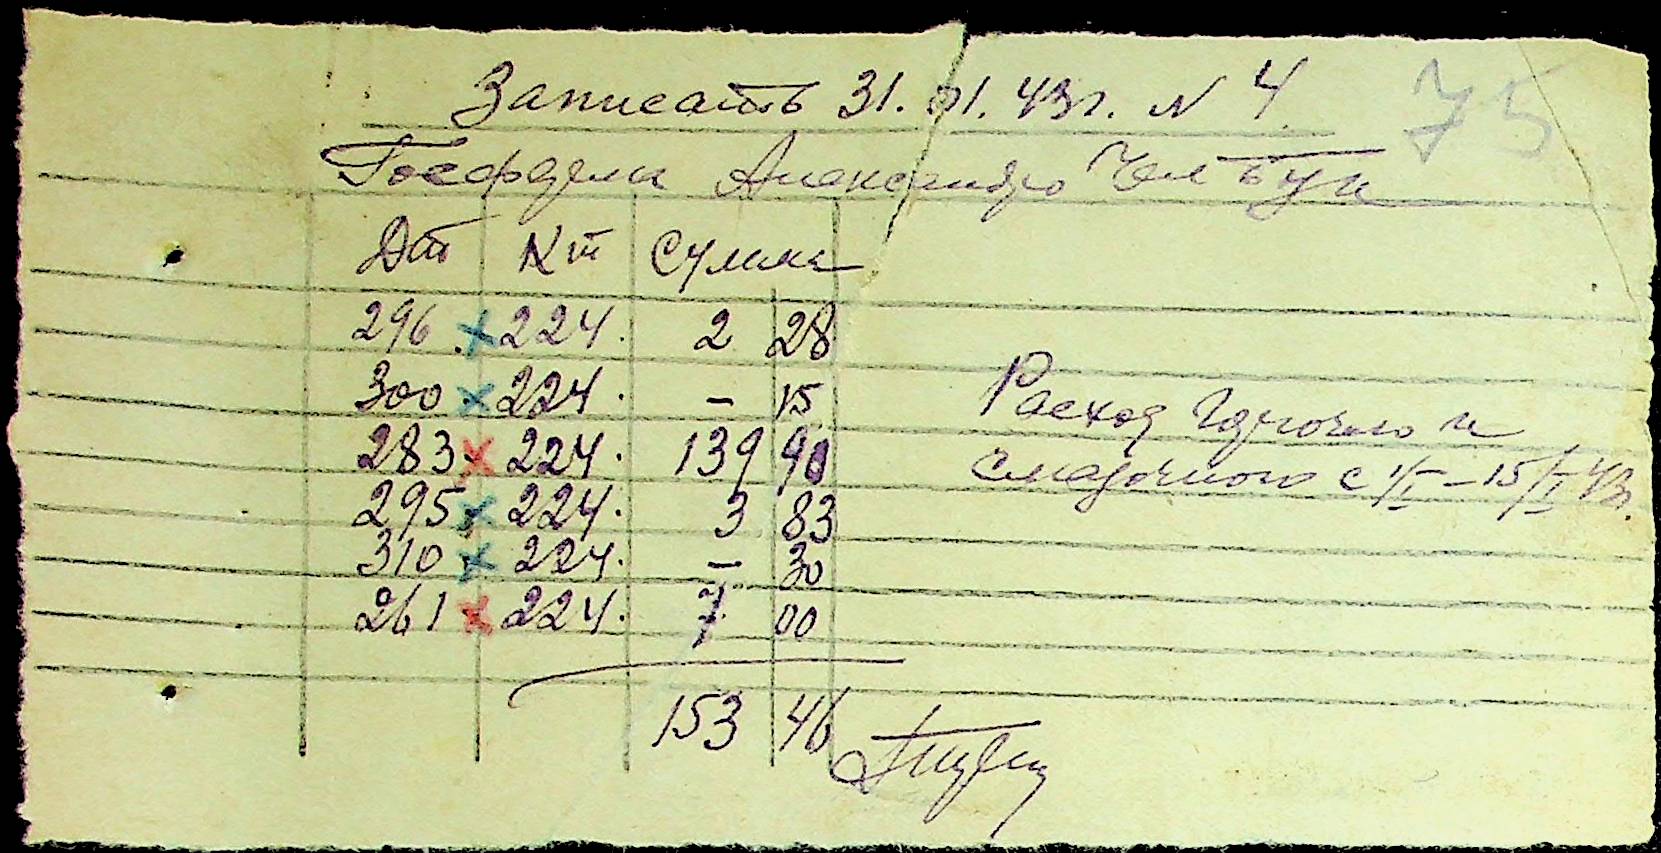 Записать 31.01.43г. N 4 75
Александро
Дт Кт Сумма
296 × 224. 2 28
300 × 224. – 15
283 × 224. 139 90
295 × 224. 3 83
310 × 224. – 30
261 × 224. 7 00
153 46
Расход горючого и
смазочного с 1/I – 15/I 43г.